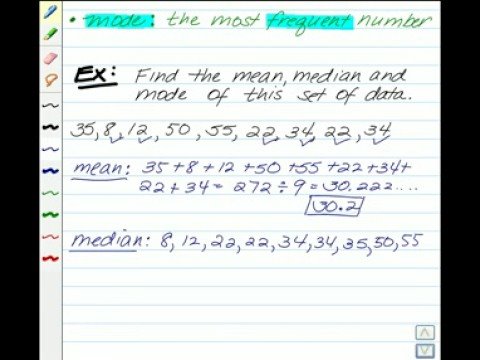 • mode: the most frequent number
Ex: Find the mean, median and
mode of this set of data.
35, 8, 12, 50, 55, 22, 34, 22, 34
mean: 35+8+12+50+55+22+34+
22+34= 272÷9=30.222....
30.2
median: 8, 12, 22, 22, 34, 34, 35, 50, 55